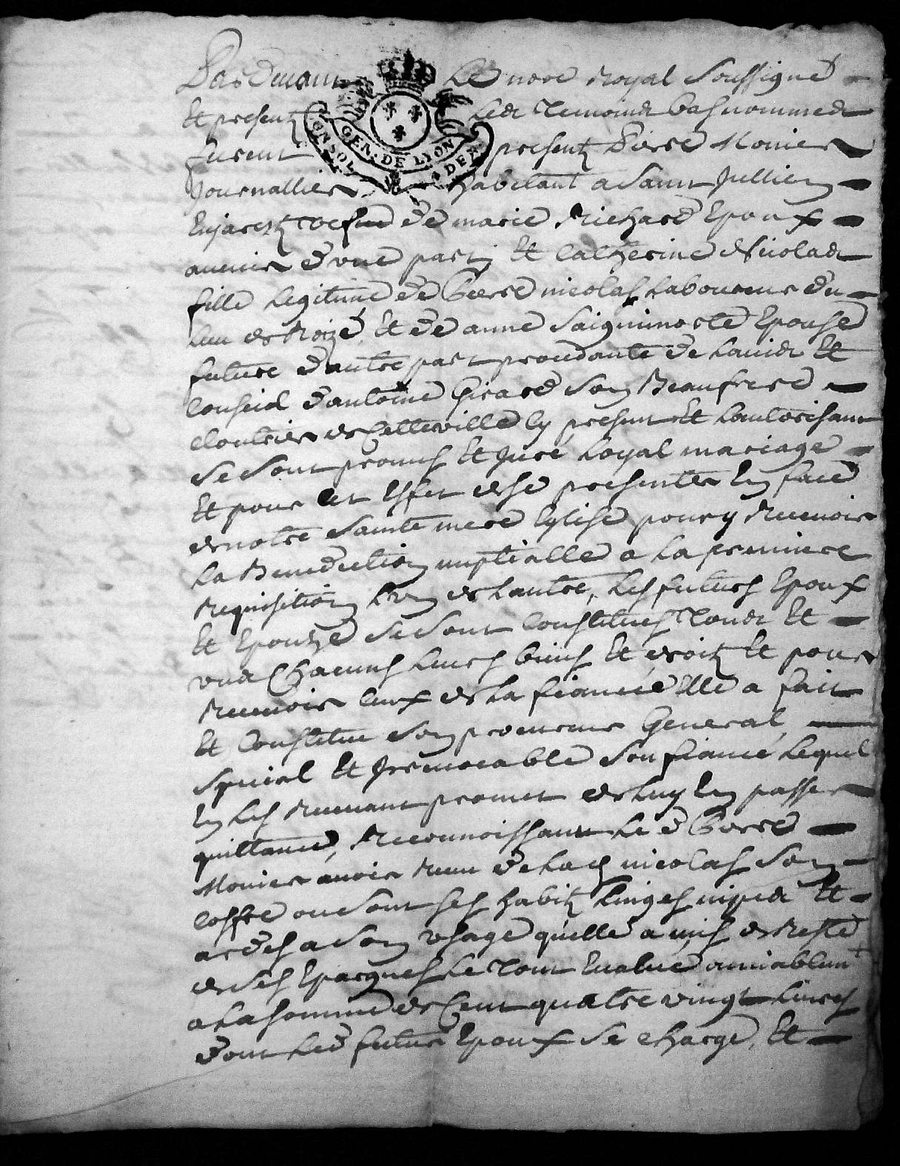 Pardevant Le nore Royal Soussigné
Et present Les Temoins bas nommes
GEN. DE LYON
furent presents Pierre Monier
Journallier habitant a Saint Jullien
Enjarest veufve de marie Richard Epoux
avenir d'vne part Et Catherine Nicolas
fille Legitime de Pierre nicolas Laboureur du
Lieu de Roizé, Et de anne Epouse
future d'autre part procedante de Lauis Et
Conseil d'antoine Girard Son Beaufrere
cloutier de Cy present Et Lautorisant
Se Sont promis Et Juré Loyal mariage
Et pour cet Effet de se presenter En face
de notre Sainte mere Eglise pour y Recevoir
La Benediction nuptialle a La premiere
Requisition Lun de Lautre, Les futurs Epoux
Et Epouze Se Sont Constitues Tous Et
vns Chacuns Leurs biens Et droits Et pour
Recevoir Ceux de La fiancée Elle a fait
Et Constitue Son procureur General,
Special Et Jrrevocable Son fiancé Lequel
En Les Recevant promet de Luy En passer
quittance, Reconnoissant Le d Pierre
Monier avoir Reçu de Lad nicolas Son
coffre ou Sont Ses habits Linges nipes Et
ardes a Son vsage quelle a mis de Reste
de Ses Epargnes Le Tout Evalué amiablemt
a La Somme de Cent quatre vingt Livres
dont Led futur Epoux Se charge, Et